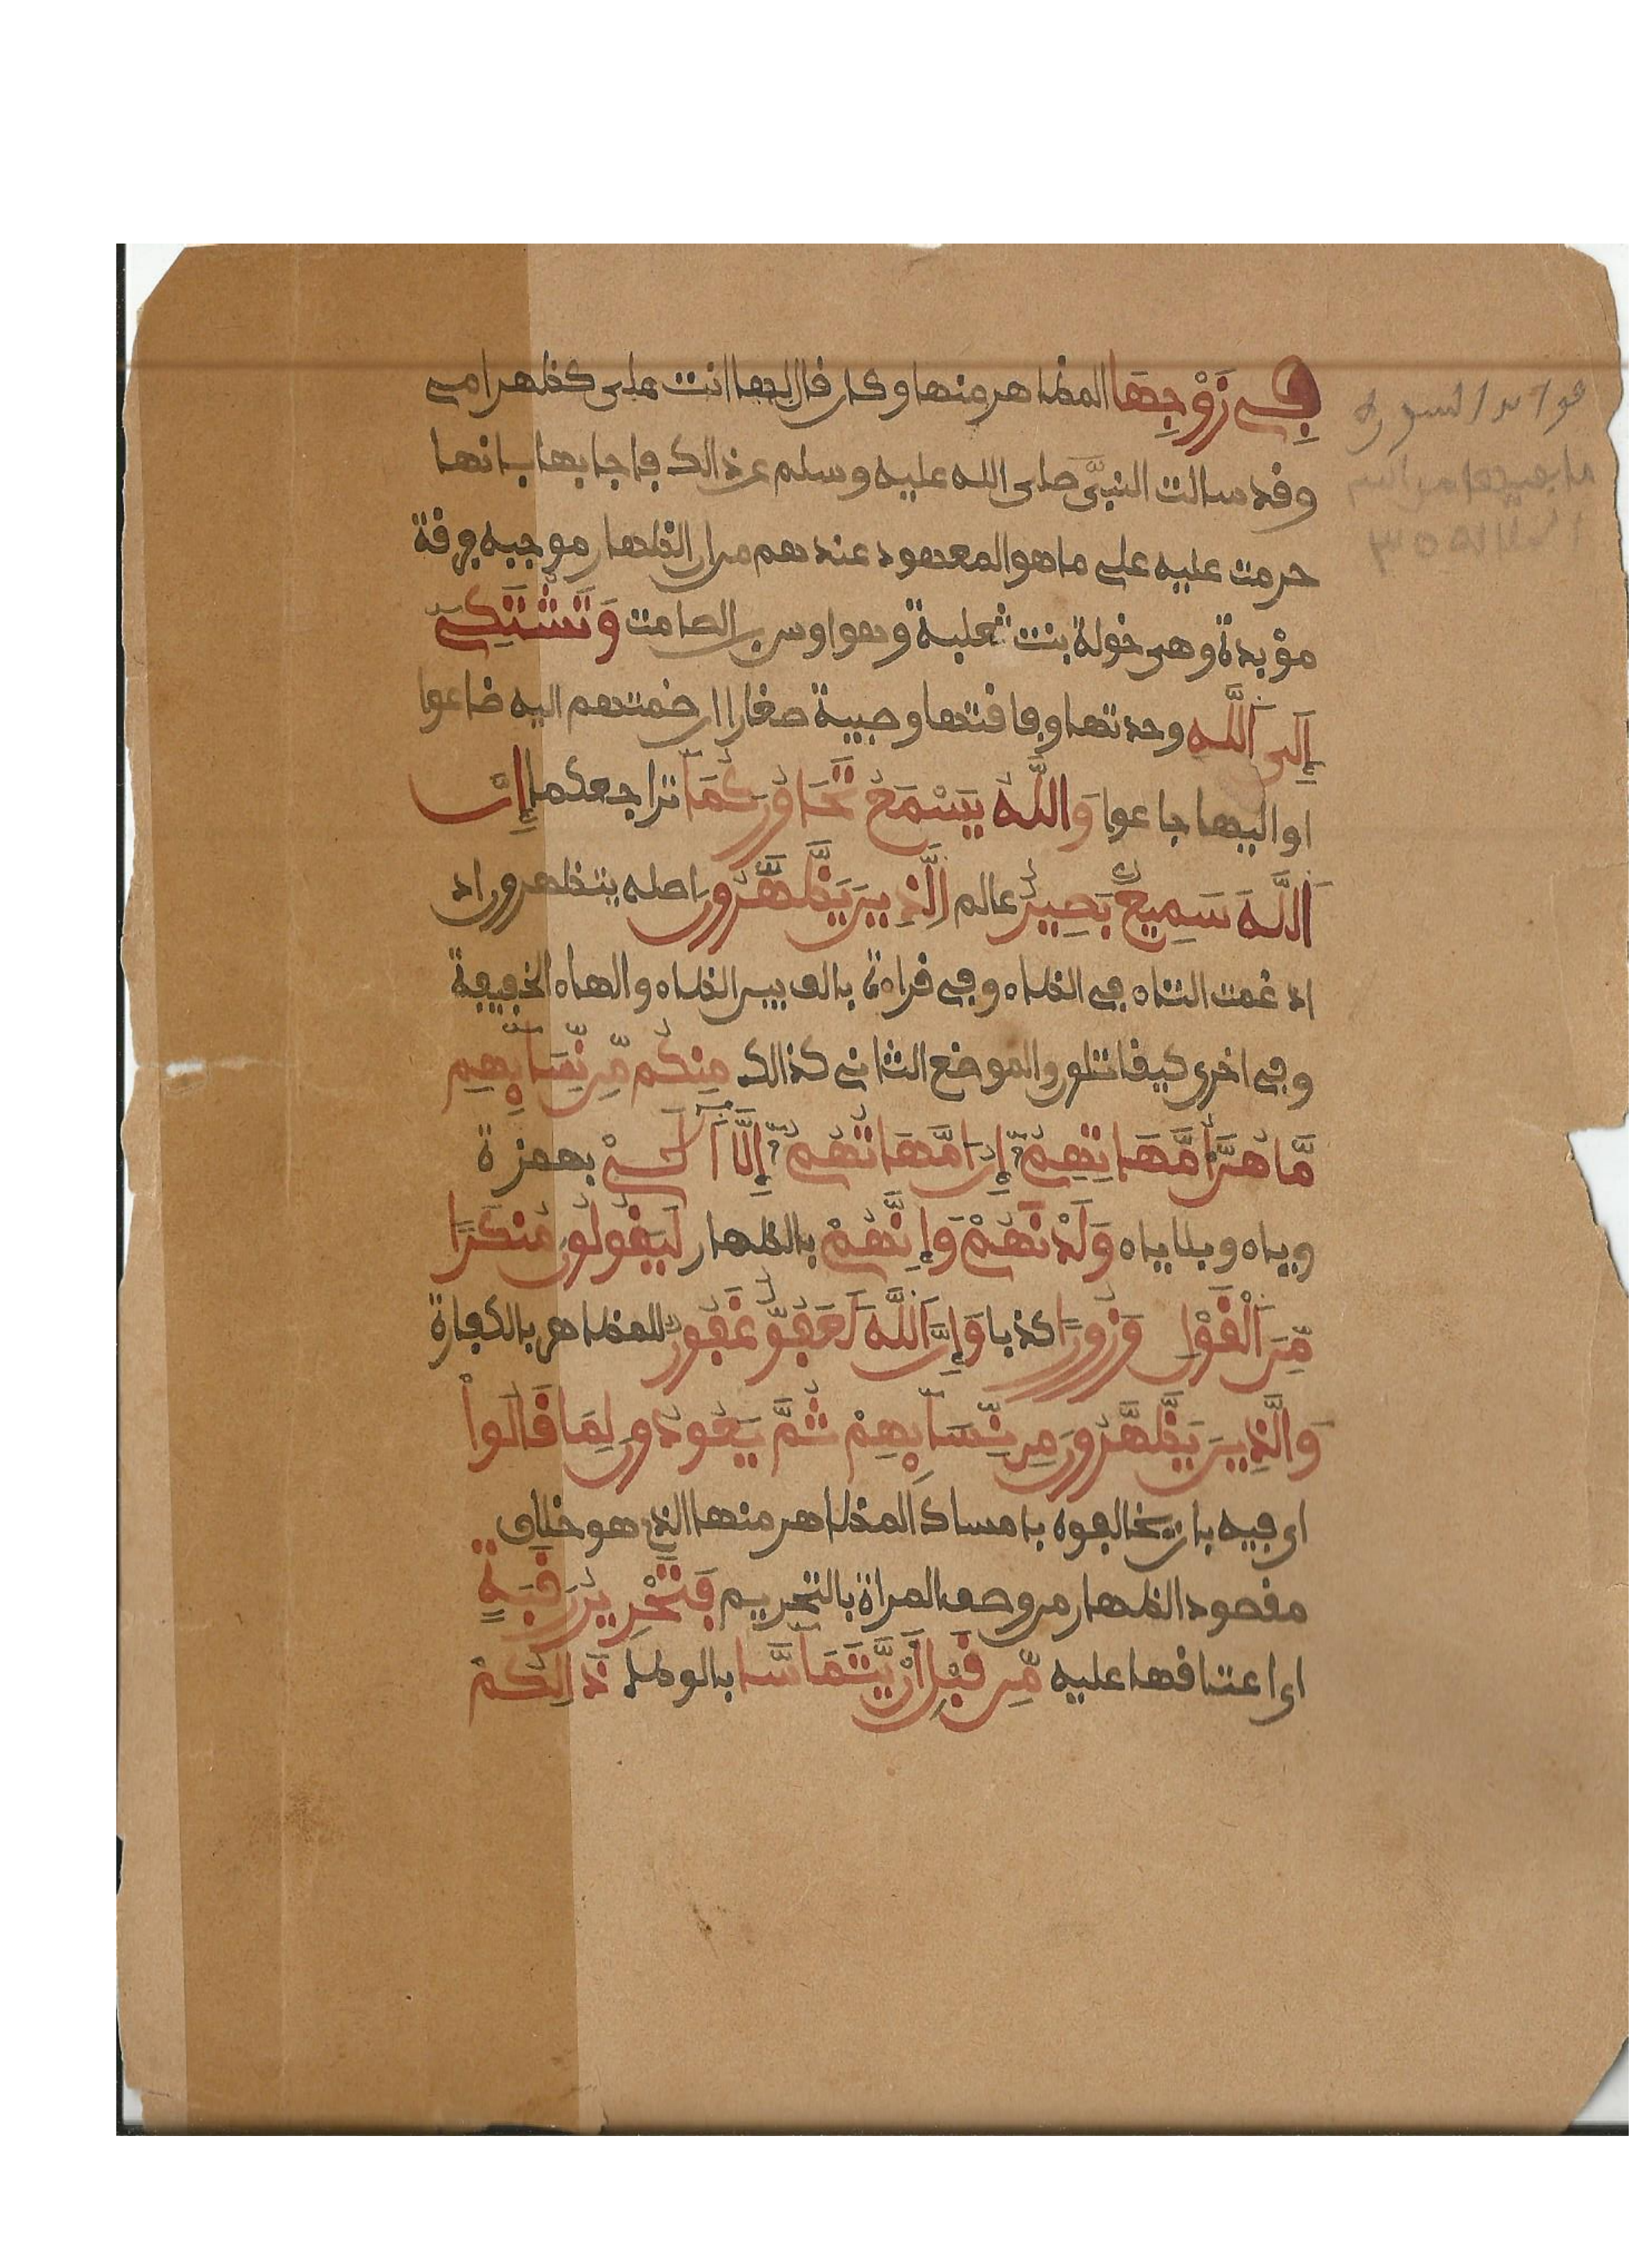 فِي زَوْجِهَا المظاهر منها وكان قال لها انت على كظهر امي
وقد سالت النبيَّ صلى الله عليه وسلم عن ذالك فاجابها بانها
حرمت عليه على ما هو المعهود عندهم من ان الظهار موجبه فرقة
مؤبدة وهي خولة بنت ثعلبة وهو اوس بن الصامت وَتَشْتَكِي
إِلَى اَللَّهِ وحدتها وفاقتها وصبية صغارا ان ضمتهم اليه ضاعوا
او اليها جاعوا وَاللَّهُ يَسْمَعُ تَحَاوُرَكُمَا تراجعكما إِنَّ
اَللَّهَ سَمِيعٌ بَصِيرٌ عالم اِلَّذِينَ يَظَّهَّرُونَ اصله يتظهرون اد
ادغمت التاء في الظاء وفي قراءة بالف بين الظاء والهاء الخفيفة
وفي اخرى كيقاتلون والموضع الثاني كذالك مِنكُم مِّن نِّسَآئِهِم
مَّا هُنَّ أُمَّهَاتِهِمُ إِنُ امَّهَاتُهُمُ إِلَّا اَلَّٰـِٔي بهمزة
وياء وبلا ياء وَلَدْنَهُمْ وَإِنَّهُمْ بالظهار لَيَقُولُونَ مُنكَرًا
مِّنَ اَلْقَوْلِ وَزُورًا كذبا وَإِنَّ اَللَّهَ لَعَفُوٌّ غَفُورٌ للمظاهر بالكفارة
وَالَّذِينَ يَظَّهَّرُونَ مِن نِّسَآئِهِمْ ثُمَّ يَعُودُونَ لِمَا قَالُواْ
اى فيه بان يخالفوه بامساك المظاهر منها الذي هو خلاف
مقصود الظهار من وصف المراة بالتحريم فَتَحْرِيرُ رَقَبَةٍ
اى اعتاقها عليه مِّن قَبْلِ أَنْ يَّتَمَآسَّا بالوطء ذَالِكُمْ